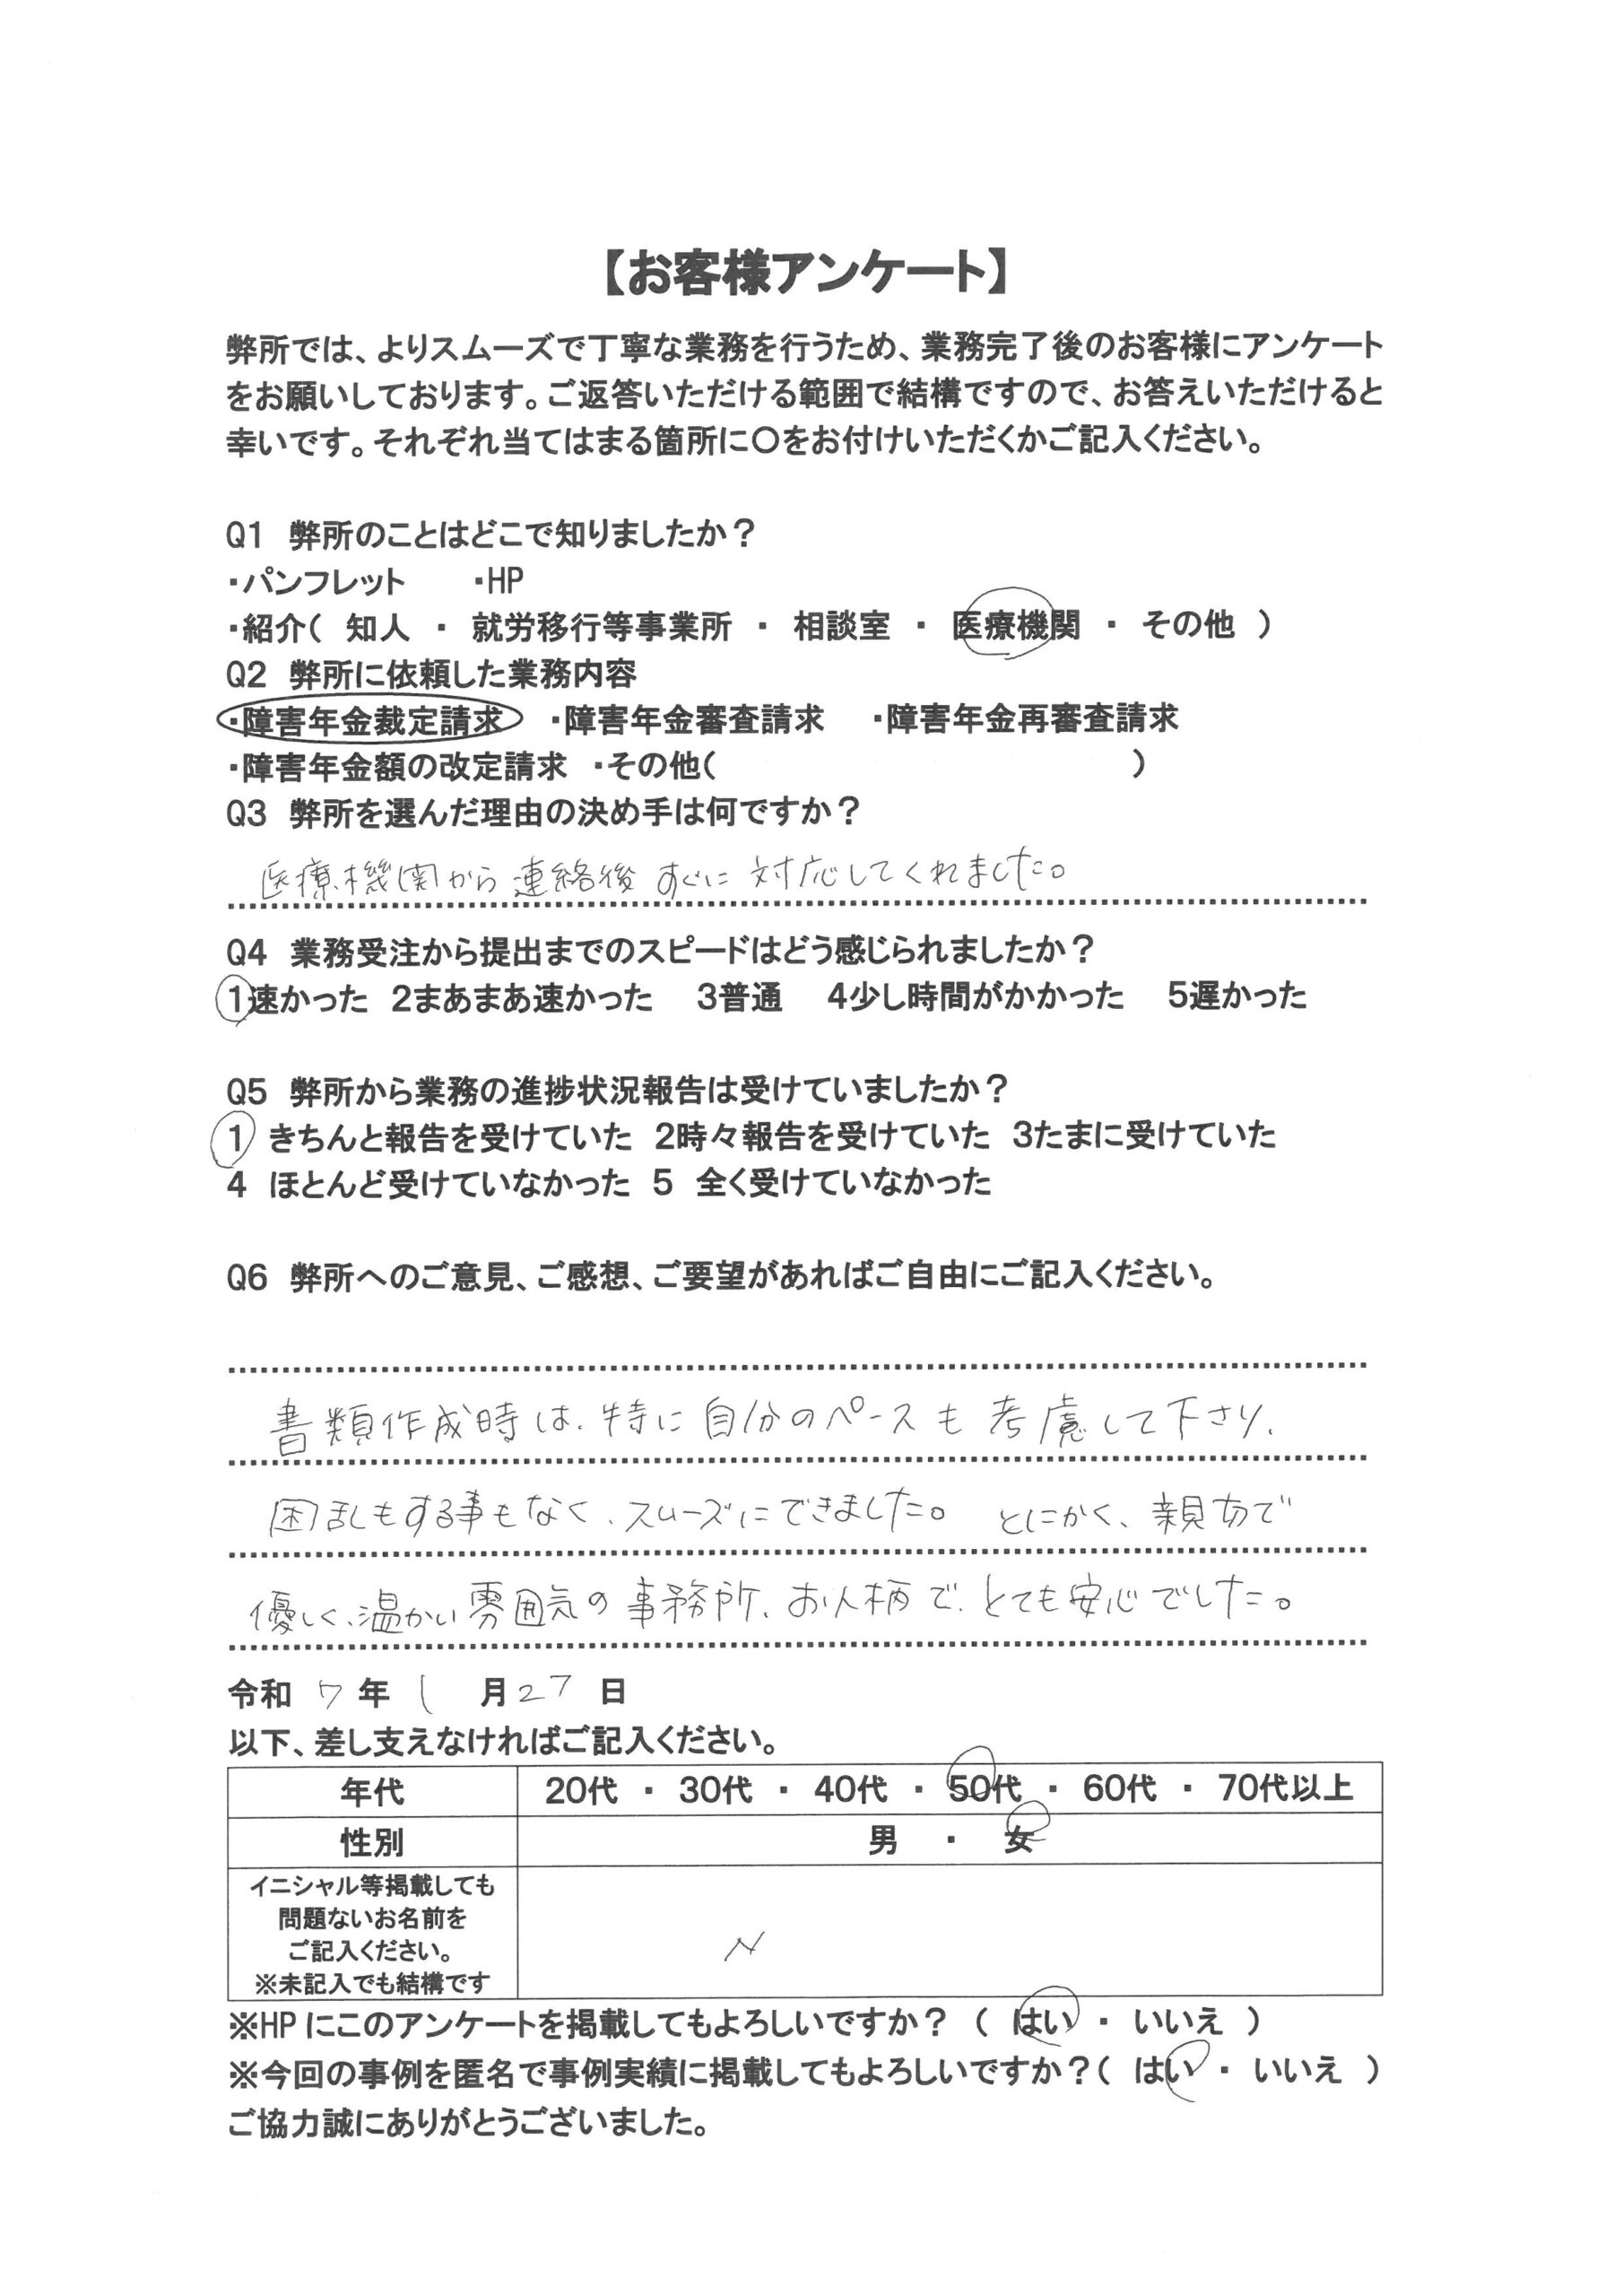 【お客様アンケート】
弊所では、よりスムーズで丁寧な業務を行うため、業務完了後のお客様にアンケート
をお願いしております。ご返答いただける範囲で結構ですので、お答えいただけると
幸いです。それぞれ当てはまる箇所に〇をお付けいただくかご記入ください。
Q1 弊所のことはどこで知りましたか?
・パンフレット ・HP
・紹介( 知人 ・ 就労移行等事業所 ・ 相談室 ・ 医療機関 ・ その他 )
Q2 弊所に依頼した業務内容
・障害年金裁定請求 ・障害年金審査請求 ・障害年金再審査請求
・障害年金額の改定請求 ・その他( )
Q3 弊所を選んだ理由の決め手は何ですか?
医療機関から連絡後すぐに対応してくれました。
Q4 業務受注から提出までのスピードはどう感じられましたか?
1速かった 2まあまあ速かった 3普通 4少し時間がかかった 5遅かった
Q5 弊所から業務の進捗状況報告は受けていましたか?
1 きちんと報告を受けていた 2時々報告を受けていた 3たまに受けていた
4 ほとんど受けていなかった 5 全く受けていなかった
Q6 弊所へのご意見、ご感想、ご要望があればご自由にご記入ください。
書類作成時は、特に自分のペースも考慮して下さり、
困乱もする事もなく、スムーズにできました。とにかく、親切で
優しく、温かい雰囲気の事務所、お人柄で、とても安心でした。
令和 7 年 1 月 27 日
以下、差し支えなければご記入ください。
年代 20代 ・ 30代 ・ 40代 ・ 50代 ・ 60代 ・ 70代以上
性別 男 ・ 女
イニシャル等掲載しても
問題ないお名前を
ご記入ください。
※未記入でも結構です
N
※HPにこのアンケートを掲載してもよろしいですか? ( はい ・ いいえ )
※今回の事例を匿名で事例実績に掲載してもよろしいですか?( はい ・ いいえ )
ご協力誠にありがとうございました。